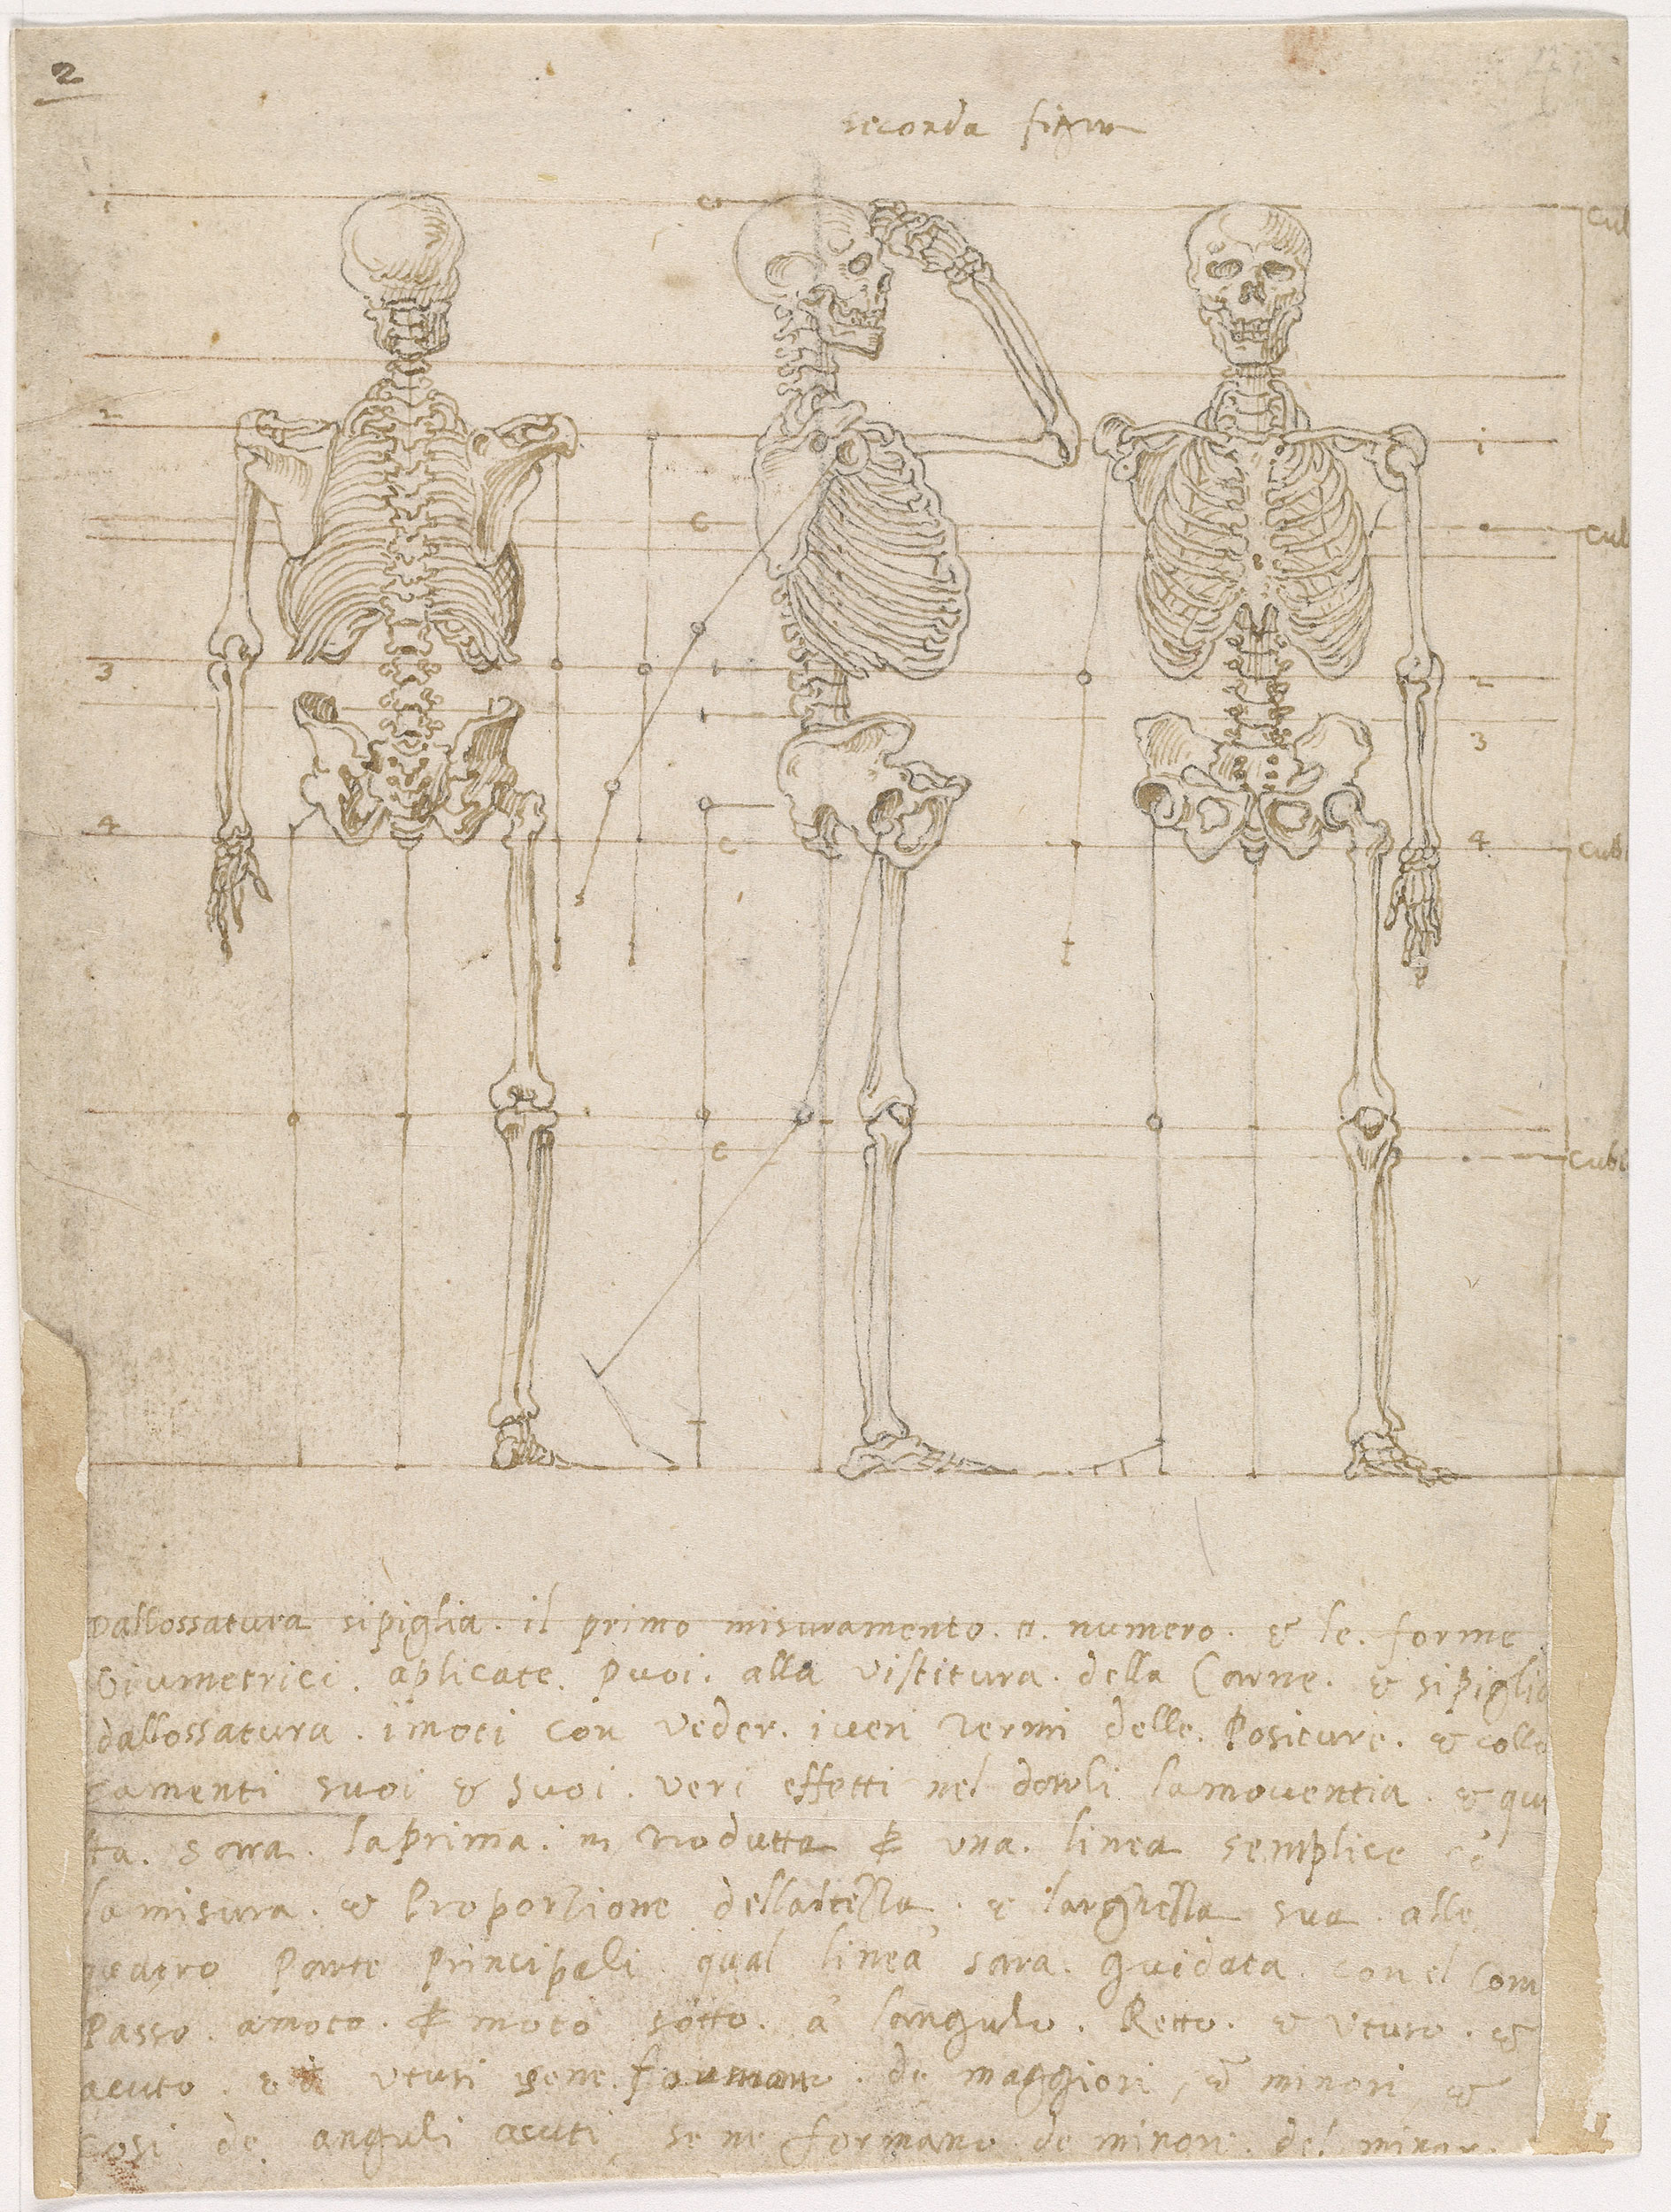 2
seconda figura
1
c
cub
2
1
c
cub
3
1
2
1
3
4
c
4
cubi
s
c
cubi
dallossatura sipiglia. il primo misuramento. a. numero. & le. forme
Giumetrici. aplicate. Puoi. alla vistitura. della Carne. & sipiglia
dallossatura. imoti con veder. iveri termi delle. Positure. & collo
camenti suoi & suoi. veri effetti nel darli lamoventia. & qu
ta. sara. laprima. in trodutta una. linea semplice cō
lamisura. & Proportione dellaltezza. e larghezza sua. alle
quatro Parte Principali qual linea sara. guidata. con el Com
Passo. amoto. moto sotto. a langulo. Retto. & utuso. &
acuto. utusi sene. formano. de maggiori, & minori, &
cosi de anguli acuti, se ne formano. de minore. del minor.